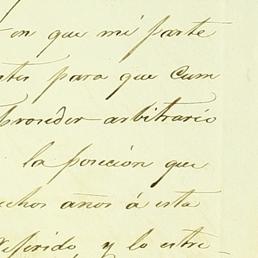 on que mi parte
ntes para que cum
Proceder arbitrario
la posicion que
echos años á esta
referido, y lo estre-